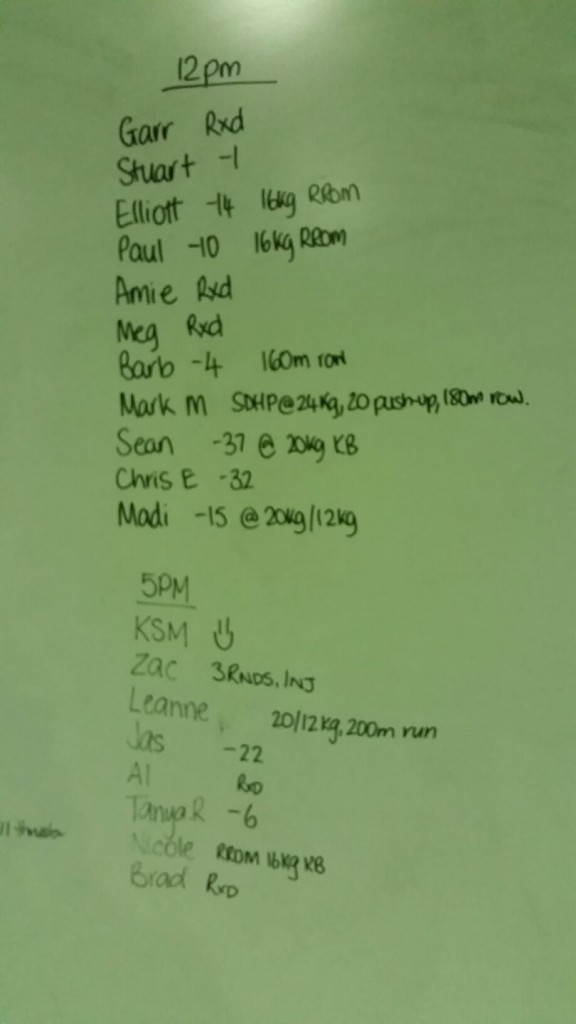 12pm
Garr Rxd
Stuart -1
Elliott -14 16kg RROM
Paul -10 16kg RROM
Amie Rxd
Meg Rxd
Barb -4 160m row
Mark M SDHP@24kg, 20 push-up, 180m row.
Sean -37 @ 20kg KB
Chris E -32
Madi -15 @20kg/12kg
5PM
KSM
Zac 3RNDS, INJ
Leanne 20/12kg, 200m run
Jas -22
Al RxD
Tanya.R -6
Nicole RROM 16kg KB
Brad RxD